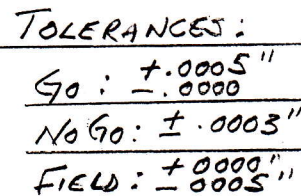 TOLERANCES:
GO: +.0005"
-.0000
NO GO: ± .0003"
FIELD: +0000"
-0005"